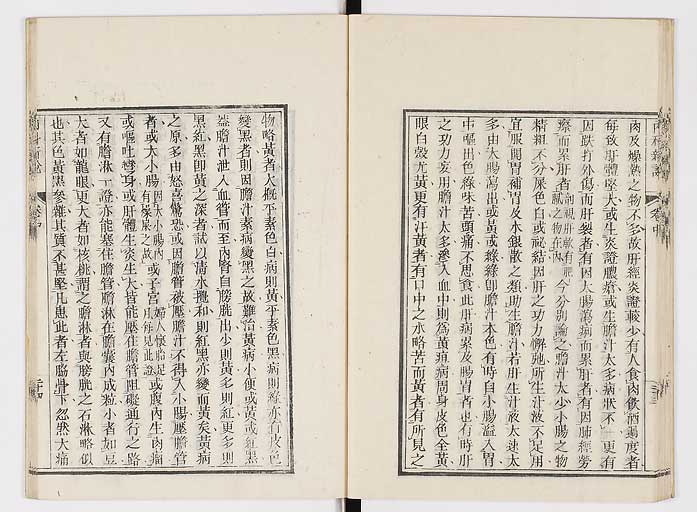 肉及燥熱之物不多故肝經炎證較少有人食肉飲酒過度者
每致肝體堅大或生炎證膿瘡或生膽汁太多病狀不一更有
因跌打外傷而肝裂者有因大腸瀉病而累肝者有因肺經勞
瘵而累肝者剖視肝軟有肥膩之物在內今分別論之膽汁太少小腸之物
精粗不分屎色白或祕結因肝之功力懈弛所生汁液不足用
宜服開胃補胃及水銀散之類助生膽汁若肝生汁液太速太
多由大腸瀉出或黃或綠綠卽膽汁本色有時自小腸溢入胃
中嘔出色綠味苦頭痛不思食此肝病累及腸胃者也有時肝
之功力妄用膽汁太多滲入血中則爲黃疸病周身皮色全黃
眼白殼尤黃更有汗黃者有口中之水略苦而黃者有所見之
物略黃者大概平素色白病則黃平素色黑病則綠亦有皮色
變黑者則因膽汁素病變黑之故難治黃病小便或黃或紅黑
蓋膽汁泄入血管而至內腎自膀胱出少則黃多則紅更多則
黑紅黑卽黃之深者試以清水攙和則紅黑亦變而黃矣黃病
之原多由怒喜驚恐或因膽管被壓膽汁不得入小腸壓膽管
者或大小腸因大小腸內有燥屎之故或子宮婦人懷胎足月每見此證或腹內生肉瘤
或嘔吐彎身或肝體生炎生大皆能壓住膽管阻礙通行之路
又有膽淋一證亦能塞住膽管膽淋在膽囊內成粒小者如豆
大者如龍眼更大者如核桃謂之膽淋者與膀胱之石淋略似
也其色黃黑參雜其質不甚堅凡患此者左脇骨下忽然大痛